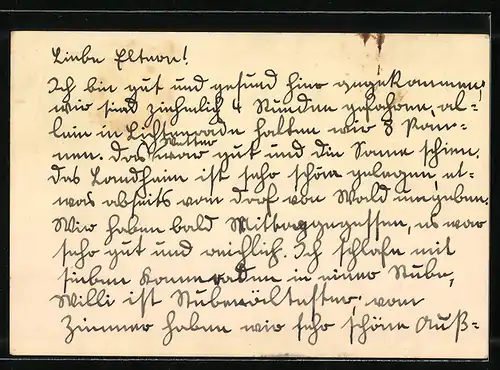 Liebe Eltern!
Ich bin gut und gesund hier angekommen,
wir sind ziehmlich 4 Stunden gefahren, al-
lein in Lichtenrade hatten wir 3 Pan-
nen. Das Wetter war gut und die Sonne schien.
Das Landheim ist sehr schön gelegen, et-
was abseits vom Dorf von Wald umgeben.
Wir haben bald Mittaggegessen, es war
sehr gut und reichlich. Ich schlafe mit
sieben Kameraden in einer Stube,
Willi ist Stubenältester, vom
Zimmer haben wir sehr schöne Auß-